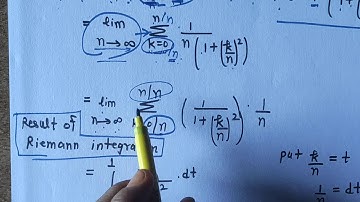 = lim n→∞ n/n Σ k=0/n 1/n(1+(k/n)²)
= lim n→∞ n/n Σ 0/n (1/1+(k/n)²) · 1/n
Result of
Riemann integration
put k/n = t
= ∫ 1 · dt
1/n = dt